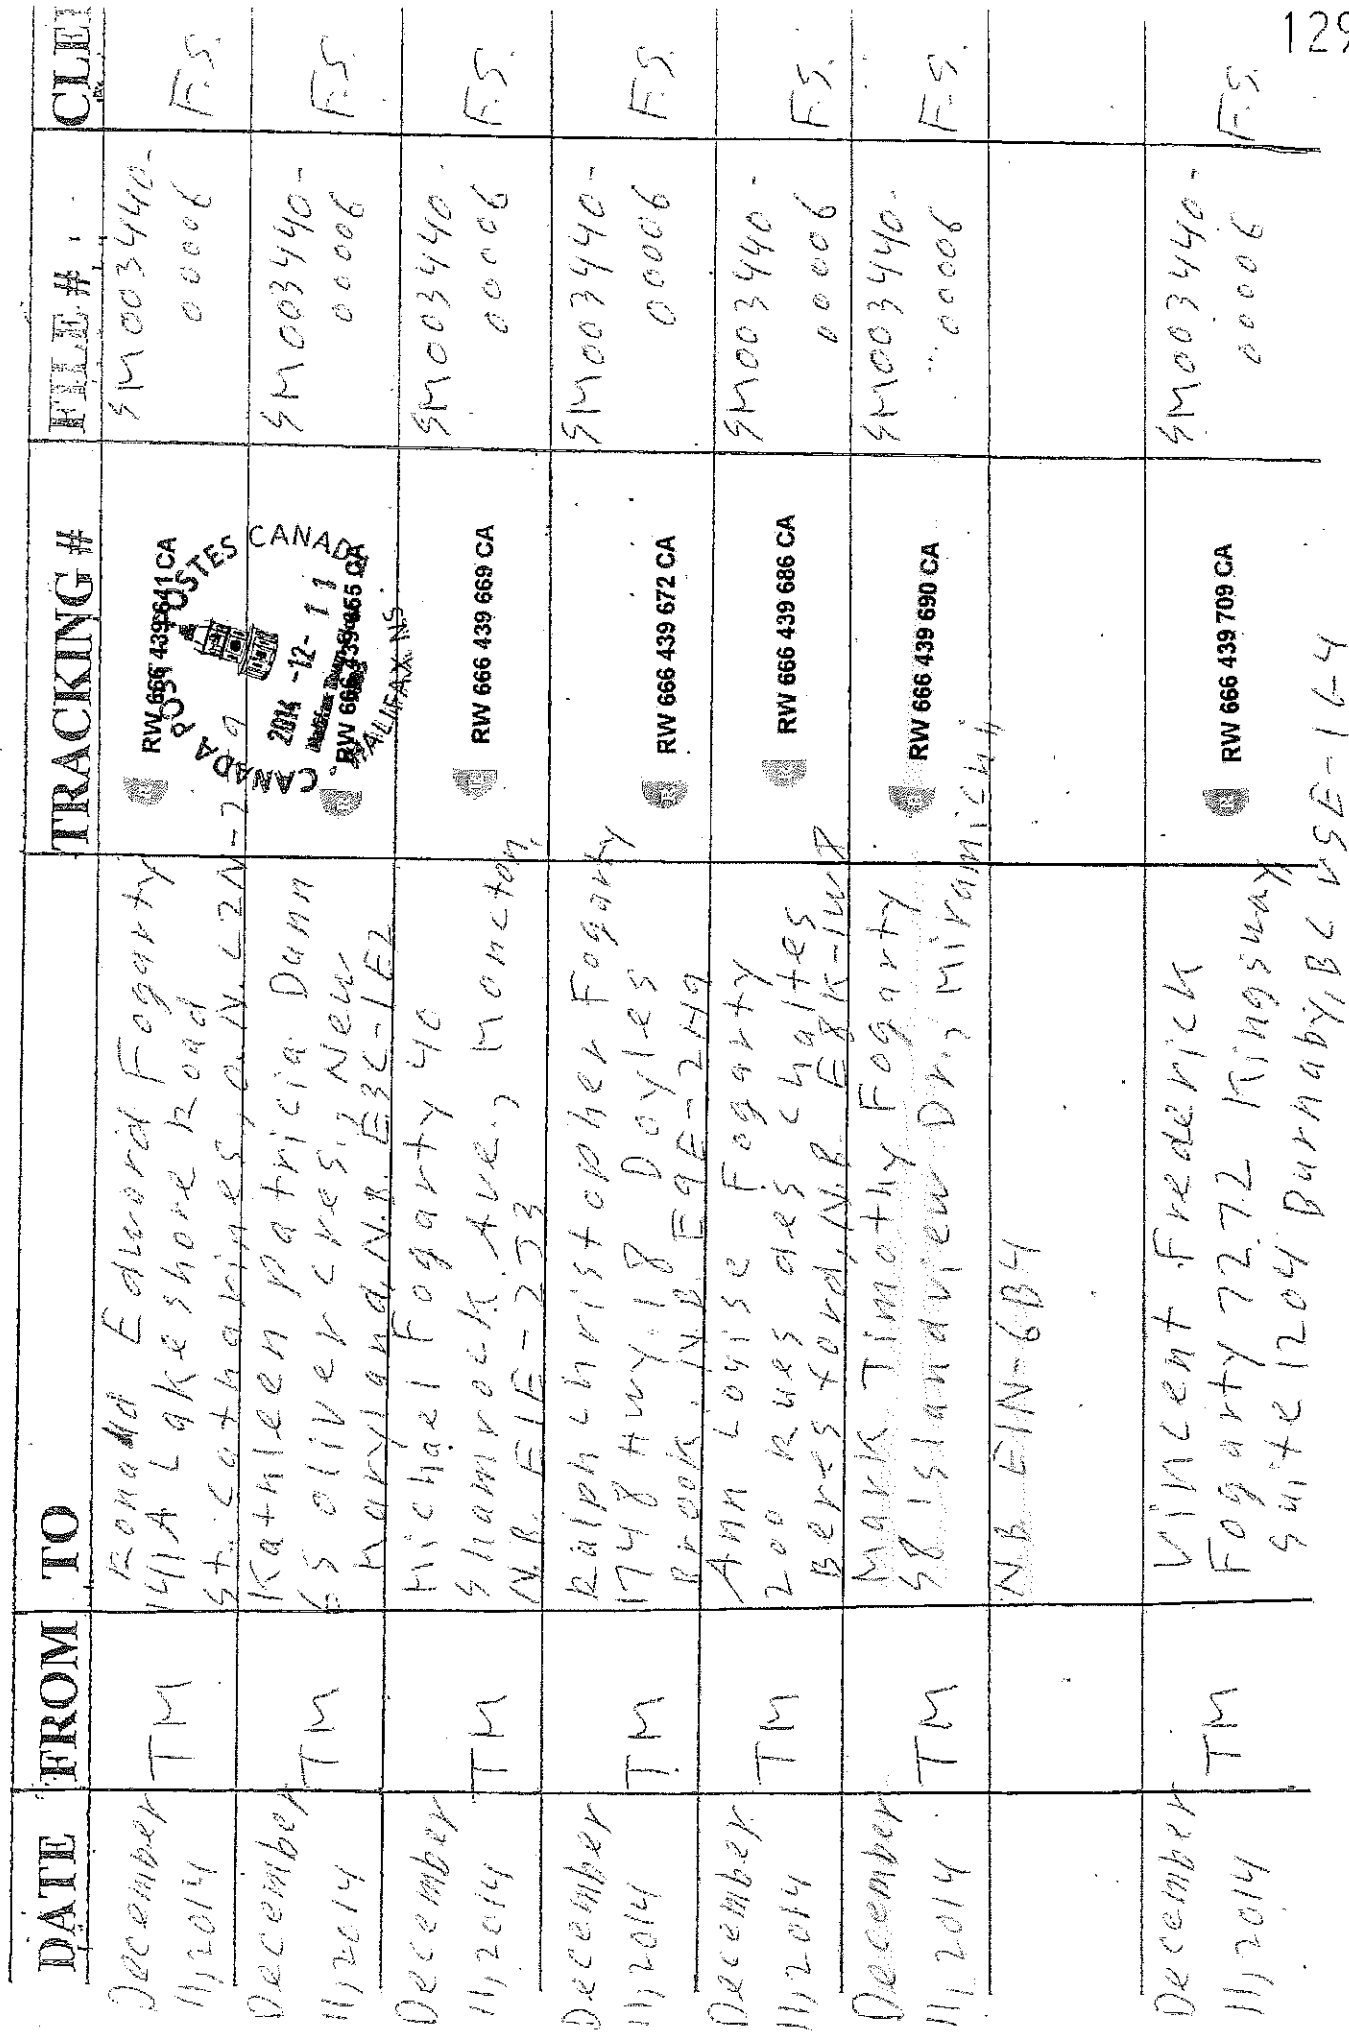 129
DATE FROM TO TRACKING # FILE # CLE
December
11, 2014
TM
Ronald Edward Fogarty
141A Lakeshore Road
St. Catharines, O.N. L2N-
RW 666 439 641 CA
SM003440-
00006
F.S.
CANADA POST POSTES CANADA
2014 -12- 11
HALIFAX NS
December
11, 2014
TM
Kathleen Patricia Dunn
65 Oliver Cres. New
Maryland, N.B. E3C-1E2
RW 666 439 655 CA
SM003440-
00006
F.S.
December
11, 2014
TM
Michael Fogarty 40
Shamrock Ave., Moncton,
N.B. E1E-2J3
RW 666 439 669 CA
SM003440-
00006
F.S.
December
11, 2014
TM
Ralph Christopher Fogarty
1748 Hwy. 18 Doyles
Brook, N.B. E9E-2H9
RW 666 439 672 CA
SM003440-
00006
F.S.
December
11, 2014
TM
Ann Louise Fogarty
200 Rues des Chaltes
Beresford, N.B. E8K-1W7
RW 666 439 686 CA
SM003440-
00006
F.S.
December
11, 2014
TM
Mark Timothy Fogarty
58 Islandview Dr., Miramichi
N.B. E1N-6B4
RW 666 439 690 CA
SM003440-
00006
F.S.
December
11, 2014
TM
Vincent Frederick
Fogarty 7272 Kingsway
Suite 1204 Burnaby, BC V5E-1G4
RW 666 439 709 CA
SM003440-
00006
F.S.